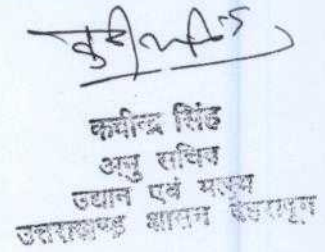 कवीन्द्र सिंह
अनु सचिव
उद्यान एवं मत्स्य
उत्तराखण्ड शासन देहरादून